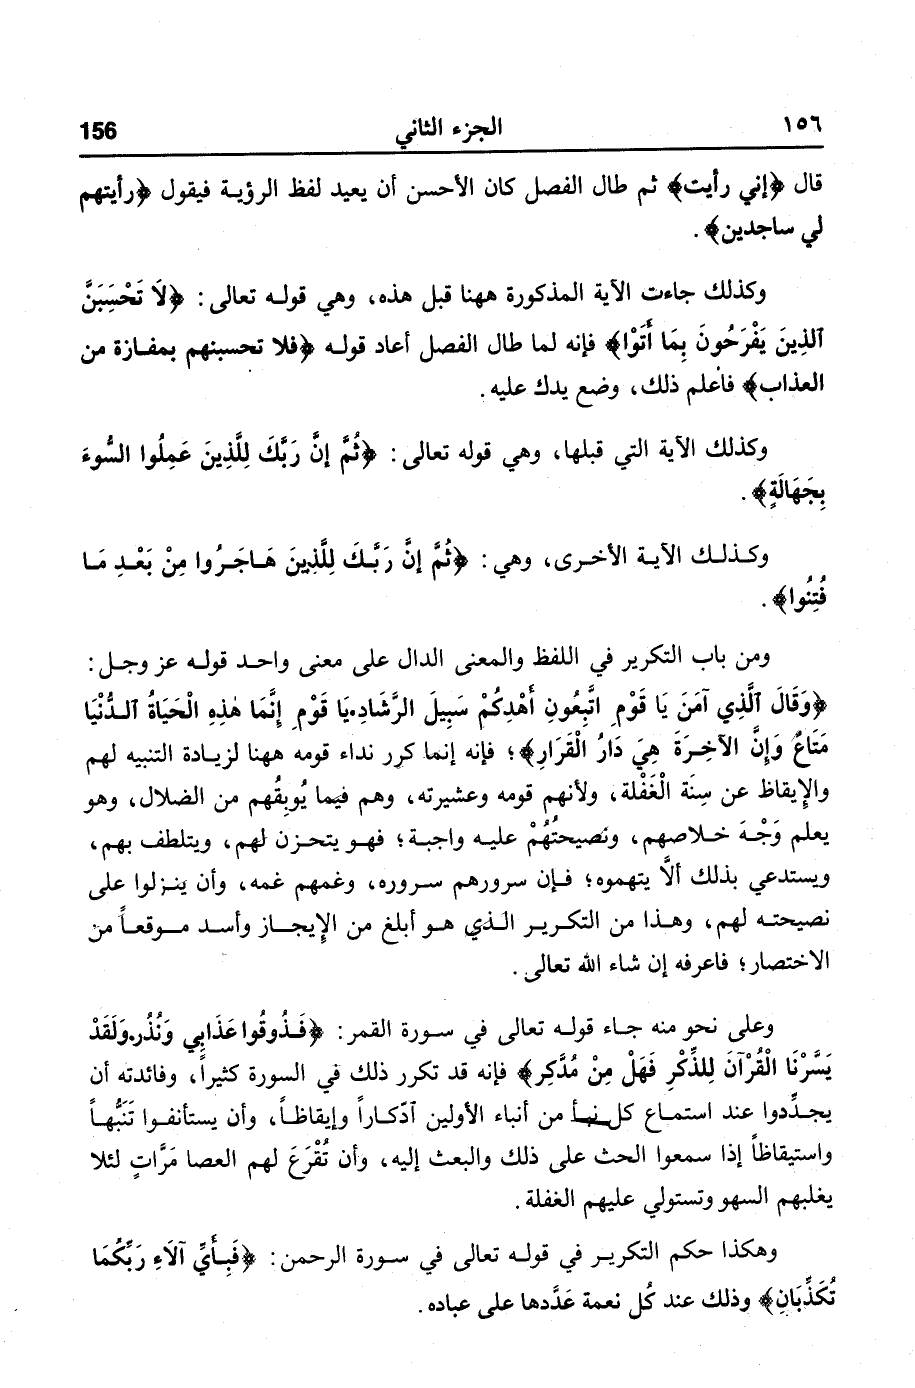 ١٥٦ الجزء الثاني 156
قال ﴿إني رأيت﴾ ثم طال الفصل كان الأحسن أن يعيد لفظ الرؤية فيقول ﴿رأيتهم
لي ساجدين﴾ .
وكذلك جاءت الآية المذكورة ههنا قبل هذه، وهي قوله تعالى: ﴿لَا تَحْسَبَنَّ
ٱلَّذِينَ يَفْرَحُونَ بِمَا أَتَوْا﴾ فإنه لما طال الفصل أعاد قوله ﴿فلا تحسبنهم بمفازة من
العذاب﴾ فاعلم ذلك، وضع يدك عليه .
وكذلك الآية التي قبلها، وهي قوله تعالى: ﴿ثُمَّ إِنَّ رَبَّكَ لِلَّذِينَ عَمِلُوا السُّوءَ
بِجَهَالَةٍ﴾ .
وكذلك الآية الأخرى، وهي: ﴿ثُمَّ إِنَّ رَبَّكَ لِلَّذِينَ هَاجَرُوا مِنْ بَعْدِ مَا
فُتِنُوا﴾ .
ومن باب التكرير في اللفظ والمعنى الدال على معنى واحد قوله عز وجل:
﴿وَقَالَ ٱلَّذِي آمَنَ يَا قَوْمِ اتَّبِعُونِ أَهْدِكُمْ سَبِيلَ الرَّشَادِ.يَا قَوْمِ إِنَّمَا هٰذِهِ الْحَيَاةُ ٱلدُّنْيَا
مَتَاعٌ وَإِنَّ الآخِرَةَ هِيَ دَارُ الْقَرَارِ﴾؛ فإنه إنما كرر نداء قومه ههنا لزيادة التنبيه لهم
والإيقاظ عن سِنَة الْغَفْلة، ولأنهم قومه وعشيرته، وهم فيما يُوبِقُهم من الضلال، وهو
يعلم وَجْهَ خلاصهم، ونصيحتُهُمْ عليه واجبة؛ فهو يتحزن لهم، ويتلطف بهم،
ويستدعي بذلك ألاَّ يتهموه؛ فإن سرورهم سروره، وغمهم غمه، وأن ينزلوا على
نصيحته لهم، وهذا من التكرير الذي هو أبلغ من الإيجاز وأسد موقعاً من
الاختصار؛ فاعرفه إن شاء الله تعالى .
وعلى نحو منه جاء قوله تعالى في سورة القمر: ﴿فَذُوقُوا عَذَابِي وَنُذُرِ.وَلَقَدْ
يَسَّرْنَا الْقُرْآنَ لِلذِّكْرِ فَهَلْ مِنْ مُدَّكِرٍ﴾ فإنه قد تكرر ذلك في السورة كثيراً، وفائدته أن
يجدِّدوا عند استماع كل نبأ من أنباء الأولين آدّكاراً وإيقاظاً، وأن يستأنفوا تَنَبُّهاً
واستيقاظاً إذا سمعوا الحث على ذلك والبعث إليه، وأن تُقْرَعَ لهم العصا مَرَّاتٍ لئلا
يغلبهم السهو وتستولي عليهم الغفلة .
وهكذا حكم التكرير في قوله تعالى في سورة الرحمن: ﴿فَبِأَيِّ آلَاءِ رَبِّكُمَا
تُكَذِّبَانِ﴾ وذلك عند كُل نعمة عَدَّدها على عباده .